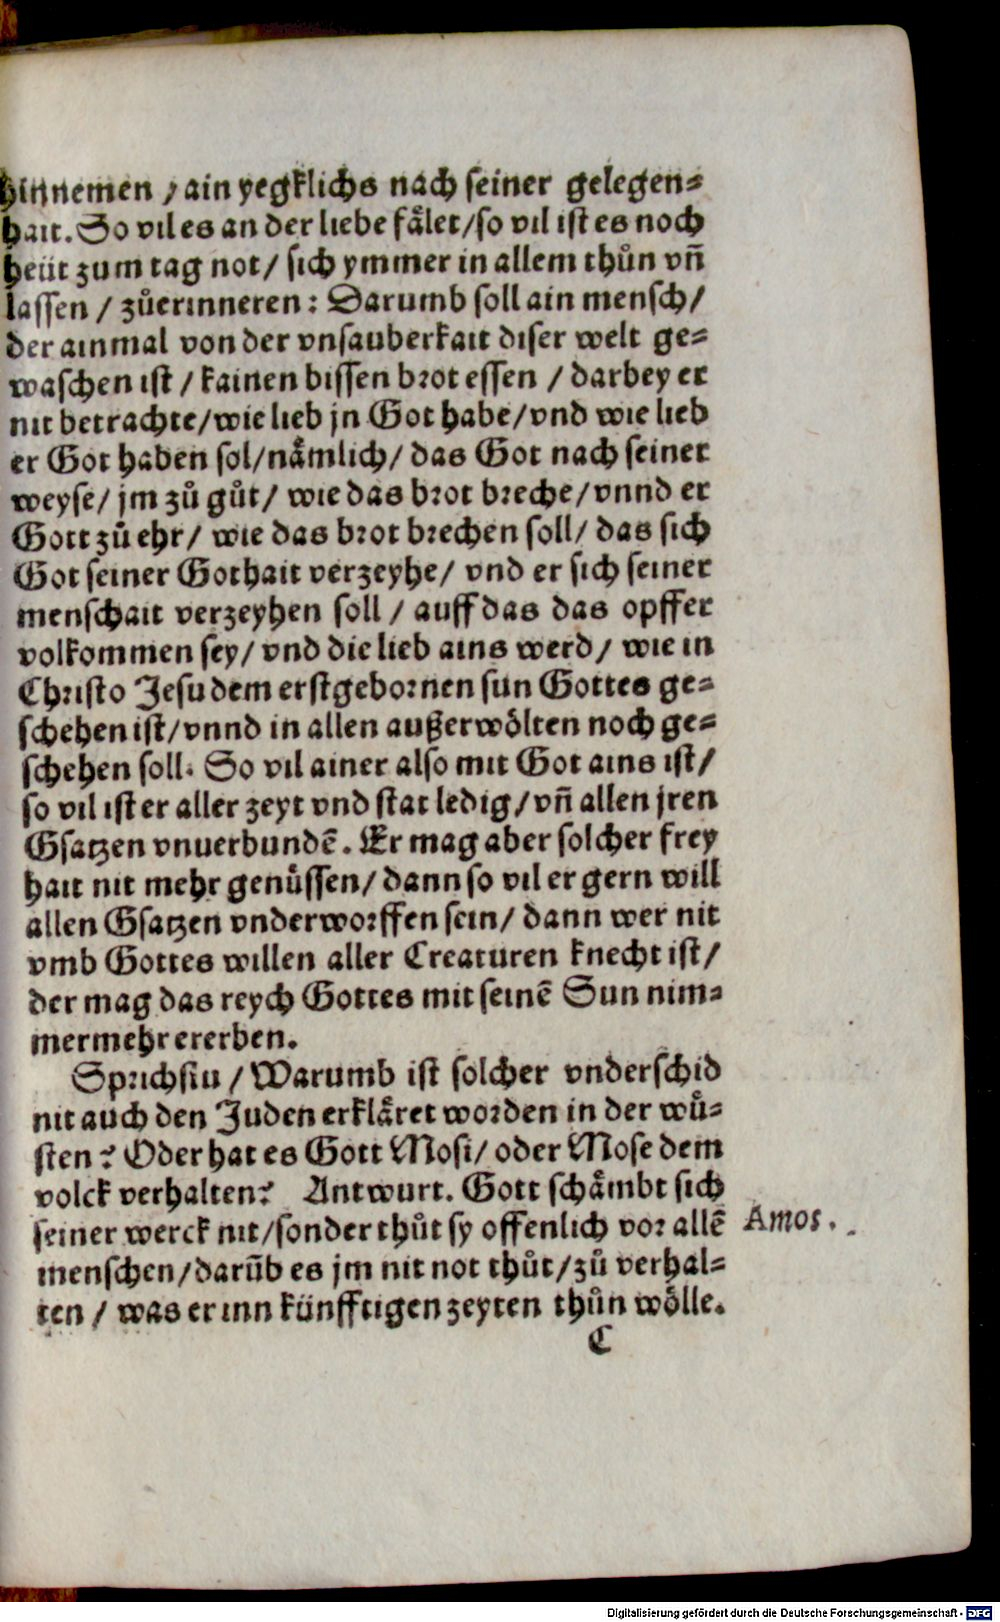 hinnemen / ain yegklichs nach seiner gelegen⸗
hait. So vil es an der liebe fålet/so vil ist es noch
heüt zum tag not/ sich ymmer in allem thůn vñ
lassen / zůerinneren: Darumb soll ain mensch/
der ainmal von der vnsauberkait diser welt ge⸗
waschen ist / kainen bissen brot essen / darbey er
nit betrachte/wie lieb jn Got habe/vnd wie lieb
er Got haben sol/nåmlich/ das Got nach seiner
weyse/ jm zů gůt/ wie das brot breche/vnnd er
Gott zů ehr/ wie das brot brechen soll/ das sich
Got seiner Gothait verzeyhe/ vnd er sich seiner
menschait verzeyhen soll / auff das das opffer
volkommen sey/ vnd die lieb ains werd/ wie in
Christo Jesu dem erstgebornen sun Gottes ge⸗
schehen ist/vnnd in allen außerwölten noch ge⸗
schehen soll. So vil ainer also mit Got ains ist/
so vil ist er aller zeyt vnd stat ledig/vñ allen jren
Gsatzen vnuerbundē. Er mag aber solcher frey
hait nit mehr genüssen/ dann so vil er gern will
allen Gsatzen vnderworffen sein/ dann wer nit
vmb Gottes willen aller Creaturen knecht ist/
der mag das reych Gottes mit seinē Sun nim⸗
mermehr ererben.
Sprichstu / Warumb ist solcher vnderschid
nit auch den Juden erklåret worden in der wů⸗
sten? Oder hat es Gott Mosi/ oder Mose dem
volck verhalten? Antwurt. Gott schåmbt sich
seiner werck nit/sonder thůt sy offenlich vor allē
menschen/darūb es jm nit not thůt/zů verhal⸗
ten / was er inn künfftigen zeyten thůn wölle.
Amos.
C
Digitalisierung gefördert durch die Deutsche Forschungsgemeinschaft - DFG